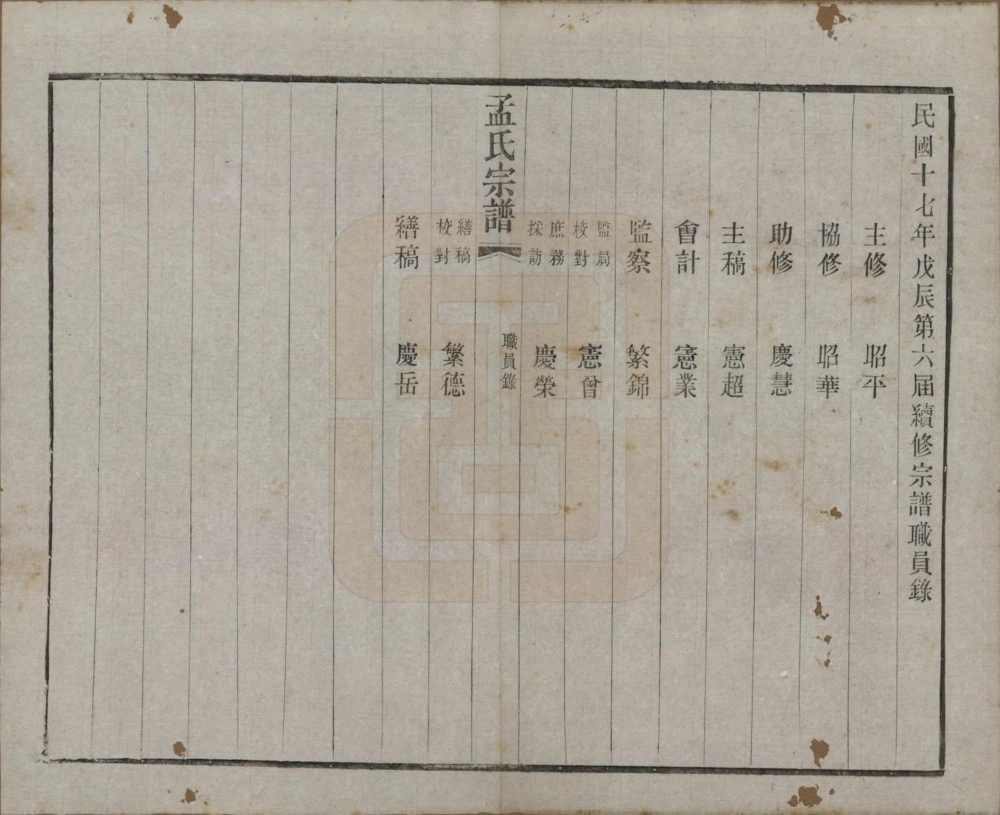 民國十七年戊辰第六届續修宗譜職員錄
主修 昭平
協修 昭華
助修 慶慧
主稿 憲超
會計 憲業
監察 繁錦
監局校對 憲曾
庶務採訪 慶榮
孟氏宗譜 職員錄
繕稿校對 繁德
繕稿 慶岳